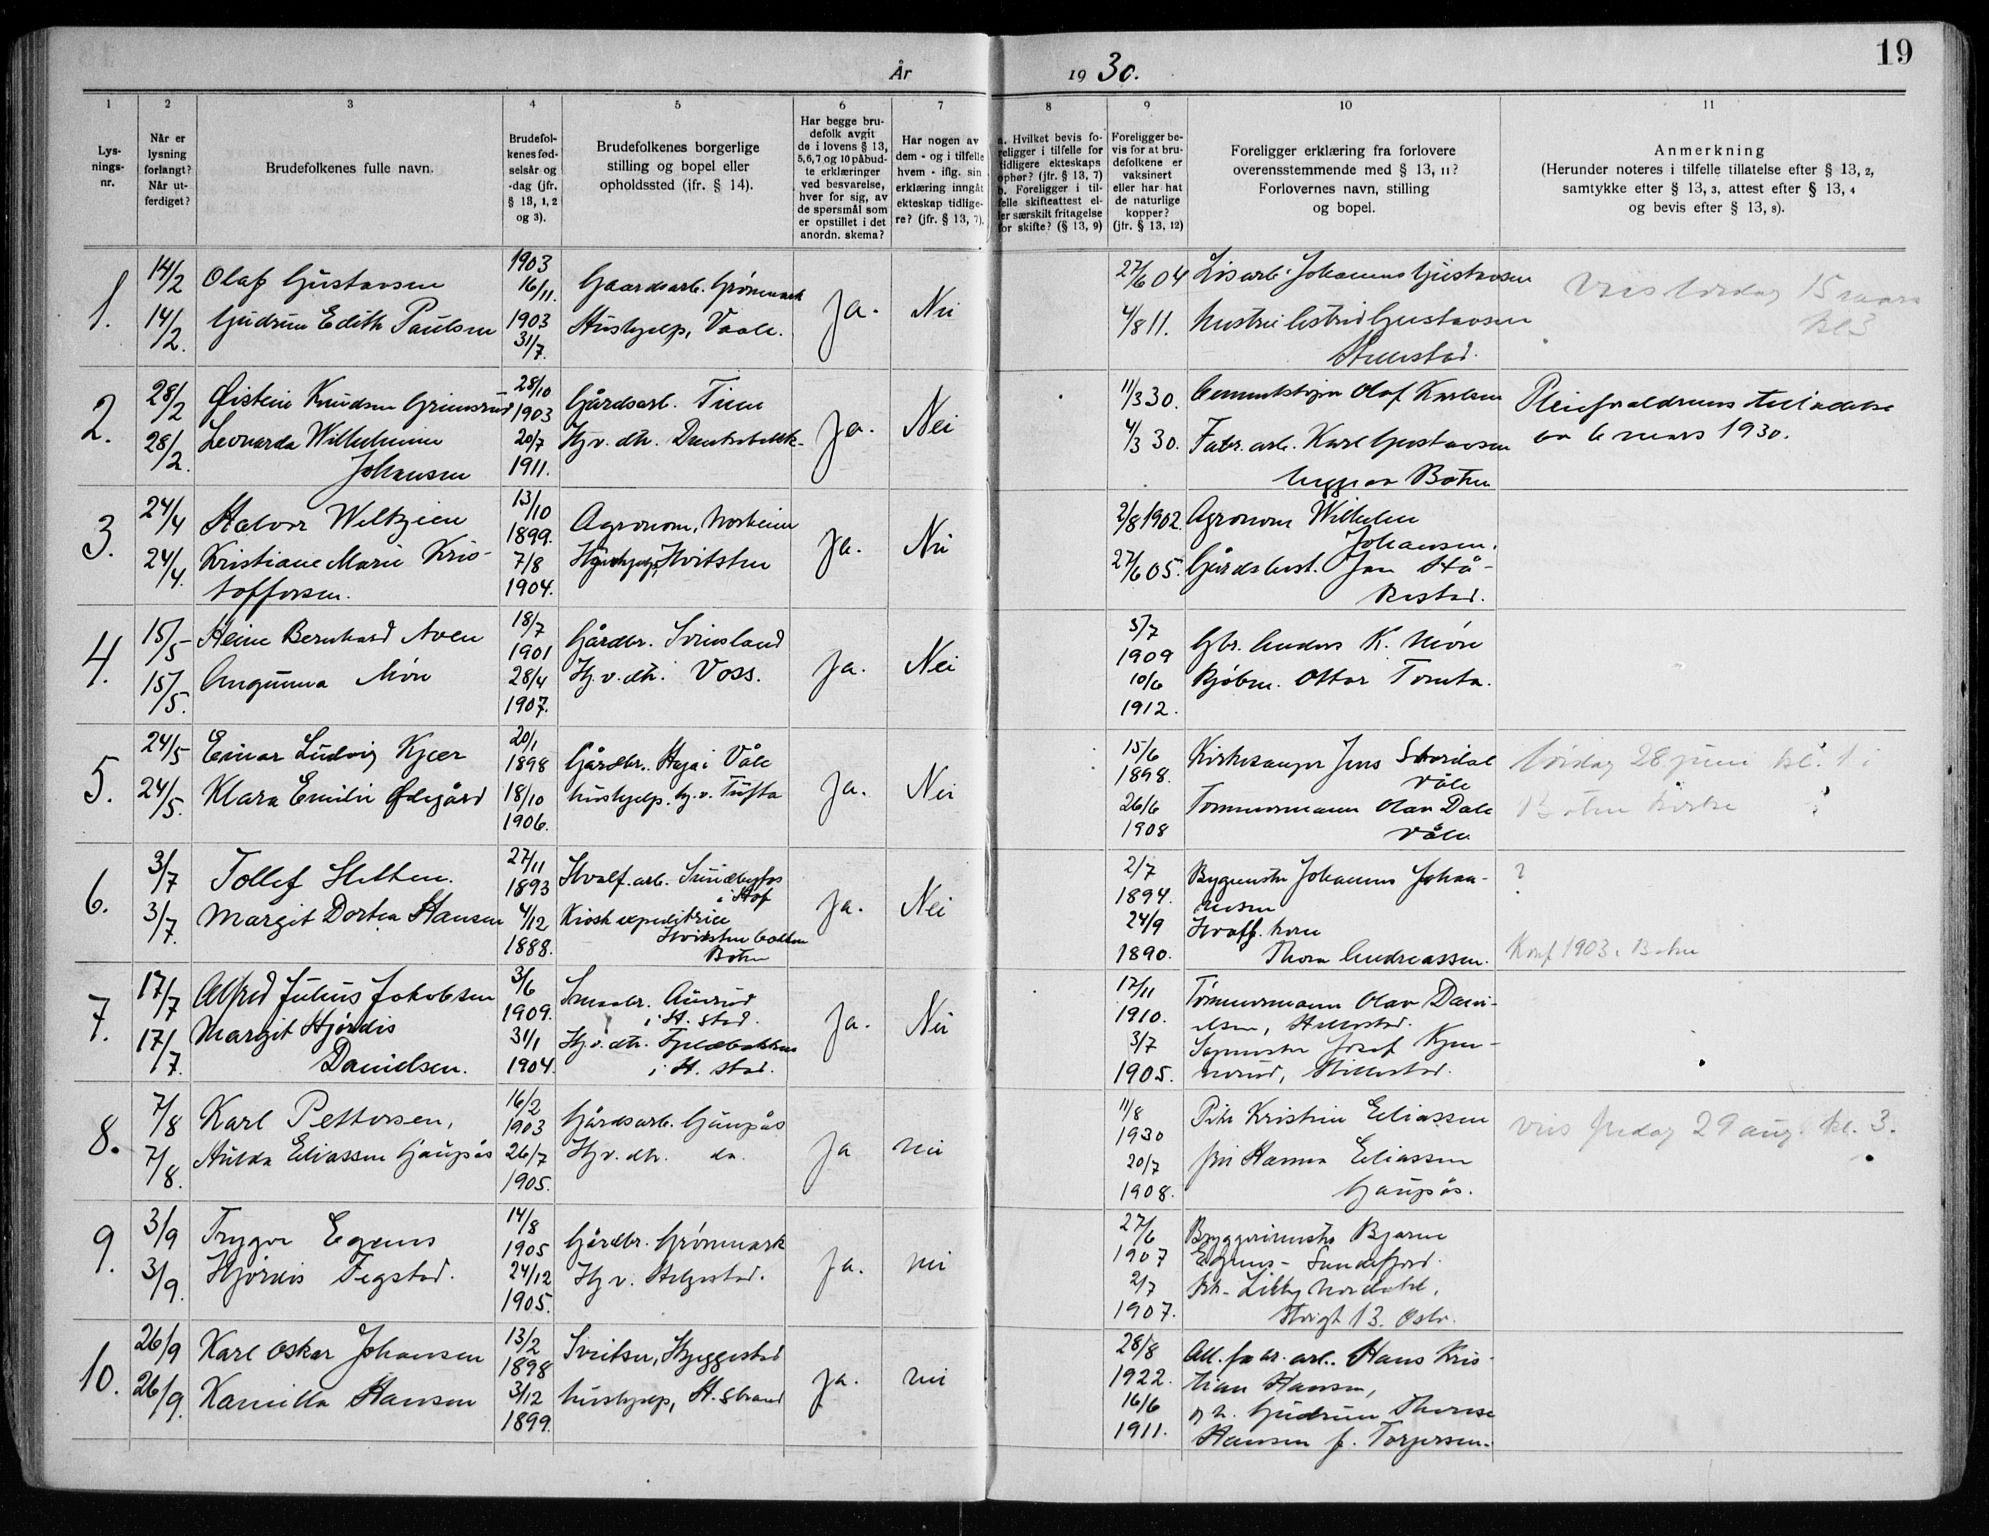 19
År 1930.
1 2 3 4 5 6 7 8 9 10 11
Lys-
nings-
nr.
Når er
lysning
forlangt?
Når ut-
ferdiget?
Brudefolkenes fulle navn.
Brudefol-
kenes fød-
selsår og
-dag (jfr.
§ 13, 1, 2
og 3).
Brudefolkenes borgerlige
stilling og bopel eller
opholdssted (jfr. § 14).
Har begge bru-
defolk avgit
de i lovens § 13,
5,6,7 og 10 påbud-
te erklæringer
ved besvarelse,
hver for sig, av
de spørsmål som
er opstillet i det
anordn. skema?
Har nogen av
dem - og i tilfelle
hvem - iflg. sin
erklæring inngått
ekteskap tidlige-
re? (jfr. § 13, 7).
a. Hvilket bevis fo-
religger i tilfelle for
tidligere ekteskaps
ophør? (jfr. § 13, 7)
b. Foreligger i til-
felle skifteattest el-
ler særskilt fritagelse
for skifte? (§ 13, 9)
Foreligger be-
vis for at bru-
defolkene er
vaksinert
eller har hat
de naturlige
kopper?
(jfr. § 13, 12)
Foreligger erklæring fra forlovere
overensstemmende med § 13, 11?
Forlovernes navn, stilling
og bopel.
Anmerkning
(Herunder noteres i tilfelle tillatelse efter § 13, 2,
samtykke efter § 13, 3, attest efter § 13, 4
og bevis efter § 13, 8).
1.
14/2
14/2.
Olaf Gustavsen
Gudrun Edith Paulsen
1903
16/11.
1903
31/7.
Gaardsarb. Grønmark
Hushjelp, Vaale.
Ja.
Nei
27/6 04
4/8 11.
Løsarb. Johannes Gustavsen
Hustru Astrid Gustavsen
Hillestad.
Vies lørdag 15 mars
kl 3
2.
28/2
28/2.
Øistein Knudsen Grimsrud
Leonarda Wilhelmine
Johansen
28/10
1903
20/7
1911.
Gårdsarb.
Hj.v. dtr.
Ja.
Nei
11/3 30.
4/3 30.
Olaf Karlsen
Fabr. arb. Karl Gustavsen
Botne
Pleieforeldrenes tilladelse
av 6 mars 1930.
3.
24/4
24/4.
Halvor Weltzien
Kristiane Marie Kris-
toffersen.
13/10
1899.
7/8
1904.
Agronom,
Hushjelp, Hvitsten
Ja.
Nei
2/8 1902.
27/6 05.
Agronom Wilhelm
Johansen.
Gårdsbest. Jon Hå-
restad.
4.
15/5
15/5.
Heine Bernhard Aven
Angunna Mòn
18/7
1901
28/4
1907.
Gårdbr. Svinsland
Hj.v. dtr. Voss.
Ja.
Nei
5/7
1909
10/6
1912.
Gbr. Anders K. Mòn
Kjøbm. Ottar Tomta.
5.
24/5
24/5.
Einar Ludvig Kjær
Klara Emilie Ødegård
20/1
1898
18/10
1906.
Gårdbr. Haga i Våle
Hushjelp. hj.v. Tufta
Ja.
Nei
15/6
1898.
26/6
1908
Kirkesanger Jens Stordal
Våle
Tømmermann Olav Dale
Våle.
Lørdag 28 juni kl. 1 i
Botne kirke
6.
3/7
3/7.
Tollef Sletten.
Margit Dortea Hansen
27/11
1893
4/12
1888.
Hvalf.arb. Sundbyfos
i Hof
Kioskexpeditrice
Botne
Ja.
Nei
2/7
1894.
24/9
1890.
Bygmester Johannes Johan-
nesen
Hvalf. kone
Thora Andreassen.
?
Konf 1903 i Botne
7.
17/7
17/7.
Alfred Julius Jakobsen
Margit Hjørdis
Danielsen.
3/6
1909.
31/1
1904.
Smaabr. Aurød
i H. stad.
Hj.v. dtr.
i H. stad.
Ja.
Nei
17/11
1910.
3/7
1905.
Tømmermann Olav Dani-
elsen, Hillestad.
Sagmester Josef Kjen-
nerud, Hillestad.
8.
7/8
7/8.
Karl Pettersen,
Hulda Eliassen Gaupås
16/2
1903
26/7
1905.
Gårdsarb. Gaupås
Hj.v. dtr. do.
Ja
nei
11/8
1930
20/7
1908.
Pike Kristine Eliassen
frk Hanna Eliassen
Gaupås.
Vies fredag 29 aug. kl. 3.
9.
3/9
3/9.
Trygve Egenes
Hjørdis Tegstad.
14/8
1905
24/12
1905.
Gårdbr. Grønmark
Hj.v. Helgestad.
Ja.
nei
27/6
1907
2/7
1907.
Byggmester Bjarne
Egenes - Sandefjord.
frk. Libby Nordahl,
13. Oslo.
10.
26/9
26/9.
Karl Oskar Johansen
Kamilla Hansen
13/2
1898
3/12
1899.
Sveitser, Skjeggestad
Hushjelp, H. Strand
Ja.
nei
28/8
1922.
16/6
1911.
All. fabr. arb. Hans Kris-
tian Hansen,
og h. Gudrun Therese
Hansen f. Torgersen.